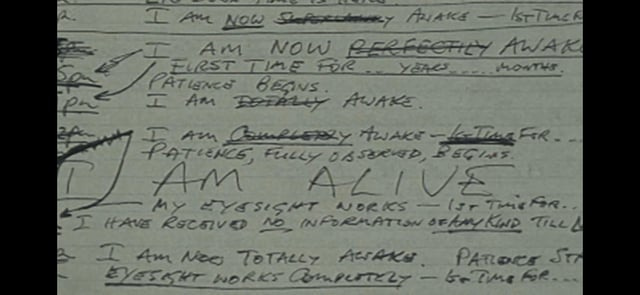 I AM NOW SUPERLATIVELY AWAKE — 1ST TIME F
I AM NOW PERFECTLY AWAK
FIRST TIME FOR... YEARS..... MONTHS.
PATIENCE BEGINS.
pm I AM TOTALLY AWAKE.
I AM COMPLETELY AWAKE — 1ST TIME FOR...
PATIENCE, FULLY OBSERVED, BEGINS.
I AM ALIVE
MY EYESIGHT WORKS — 1ST TIME FOR..
I HAVE RECEIVED NO INFORMATION OF ANY KIND TILL
I AM NOW TOTALLY AWAKE. PATIENCE ST
EYESIGHT WORKS COMPLETELY — 1ST TIME FOR...